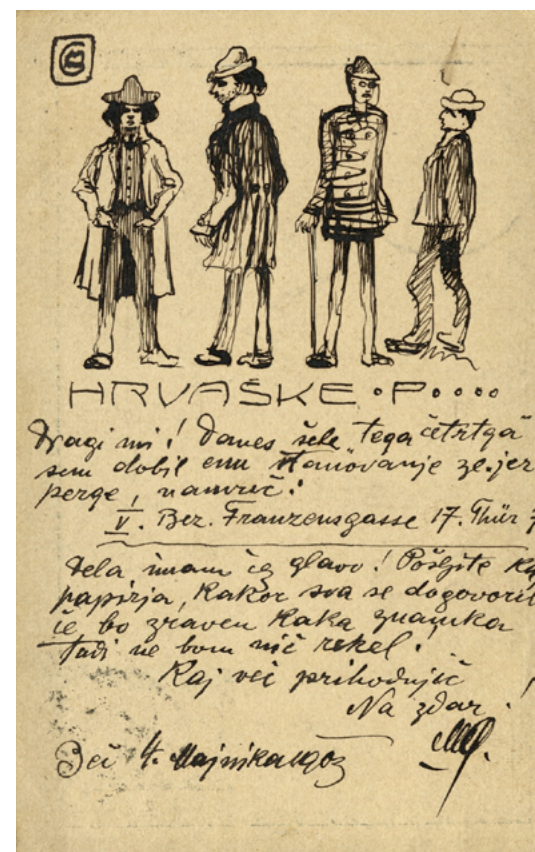 HRVAŠKE • P • • • •
Dragi mi! Danes šele tega četrtga
sem dobil enu stanovanje
perge, namreč:
V. Bez. Franzensgasse 17. Thür 7
Dela imam čez glavo! Pošljite kaj
papirja, kakor sva se dogovorila
če bo zraven kaka znamka
tudi ne bom nič rekel!
Kaj več prihodnjič
Na zdar!
Beč 4. Majnika 1903